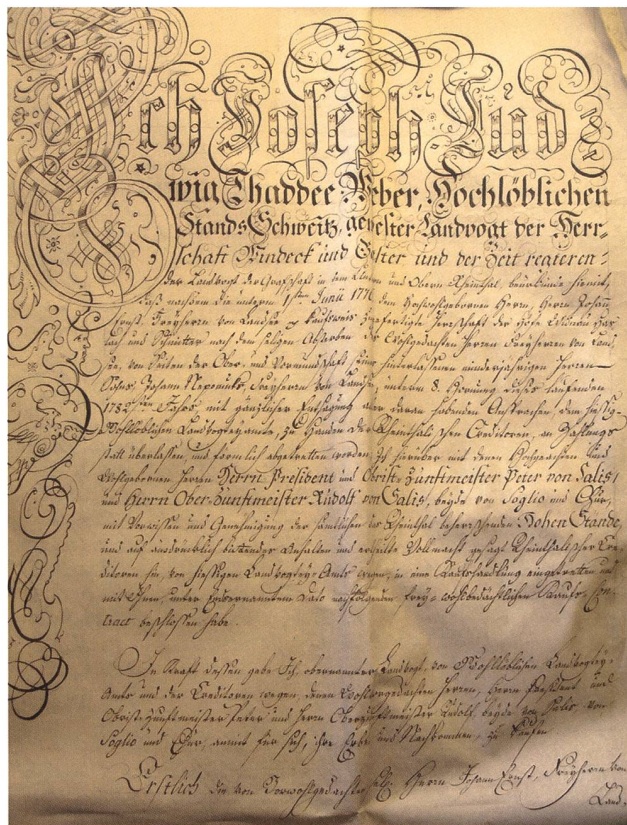 Ich Joseph Lud=
wig Thaddee Weber, Hochlöblichen
Stands Schweitz, gewester Landvogt der Herr=
schaft Windeck und Gaster und der Zeit regieren=
der Landvogt der Grafschaft in dem Untern und Obern Rheinthal, beurkunde hiemit,
daß nachdem die unterm 1sten Junii 1776 dem Hochwohlgebornen Herrn, Herrn Johann
Ernst, Freyherrn von Landsee Herrschaft der Höfe Widnau Has=
lach und Schmitter nach dem seligen Absterben des Wohlgedachten Herren Freyherrn von Land=
see, von Seiten der Ober- und Vormundschaft seines hinterlassenen minderjährigen Herren
Sohns Johann Nepomuks Freyherrn von Landsee, unterm 8. Hornung dieses laufenden
Jahrs, mit gänzlicher Entsagung aller daran habenden Ansprachen dem hiesig=
Wohlloblichen Landvogteyamte, zu Handen der Rheinthalischen Creditoren, an Zahlungs
statt überlassen, und förmlich abgetretten worden, ich hierüber mit denen Hochgeachten und
Wohlgebornen Herren Herrn President und Obrist-Zunftmeister Peter von Salis,
und Herrn Ober-Zunftmeister Rudolf von Salis, beyde von Soglio und Chur,
mit Vorwissen und Genehmigung der sämtlichen das Rheinthal beherrschenden Hohen Stände,
und auf ausdrücklich bittendes Anhalten und ertheilte Vollmacht gesagt Rheinthalischer Cre=
ditoren hin, von hiesigen Landvogtey-Amts wegen, in eine Kaufshandlung eingetretten und
mit Ihnen unter Dato nachfolgenden frey= wohlbedächtlichen Kaufs-Con=
tract beschlossen habe.
In Kraft dessen gebe Ich obernannter Landvogt, von Wohlloblichen Landvogtey=
Amts und der Creditoren wegen, denen Wohlvorgedachten Herren, Herrn President und
Obrist-Zunftmeister Peter und Herrn Oberzunftmeister Rudolf beyde von Salis, von
Soglio und Chur, für sich, ihre Erben und Nachkommen, zu kaufen
Erstlich die von Vorwohlgedachter Herrn Johann Ernst, Freyherrn von
Land=